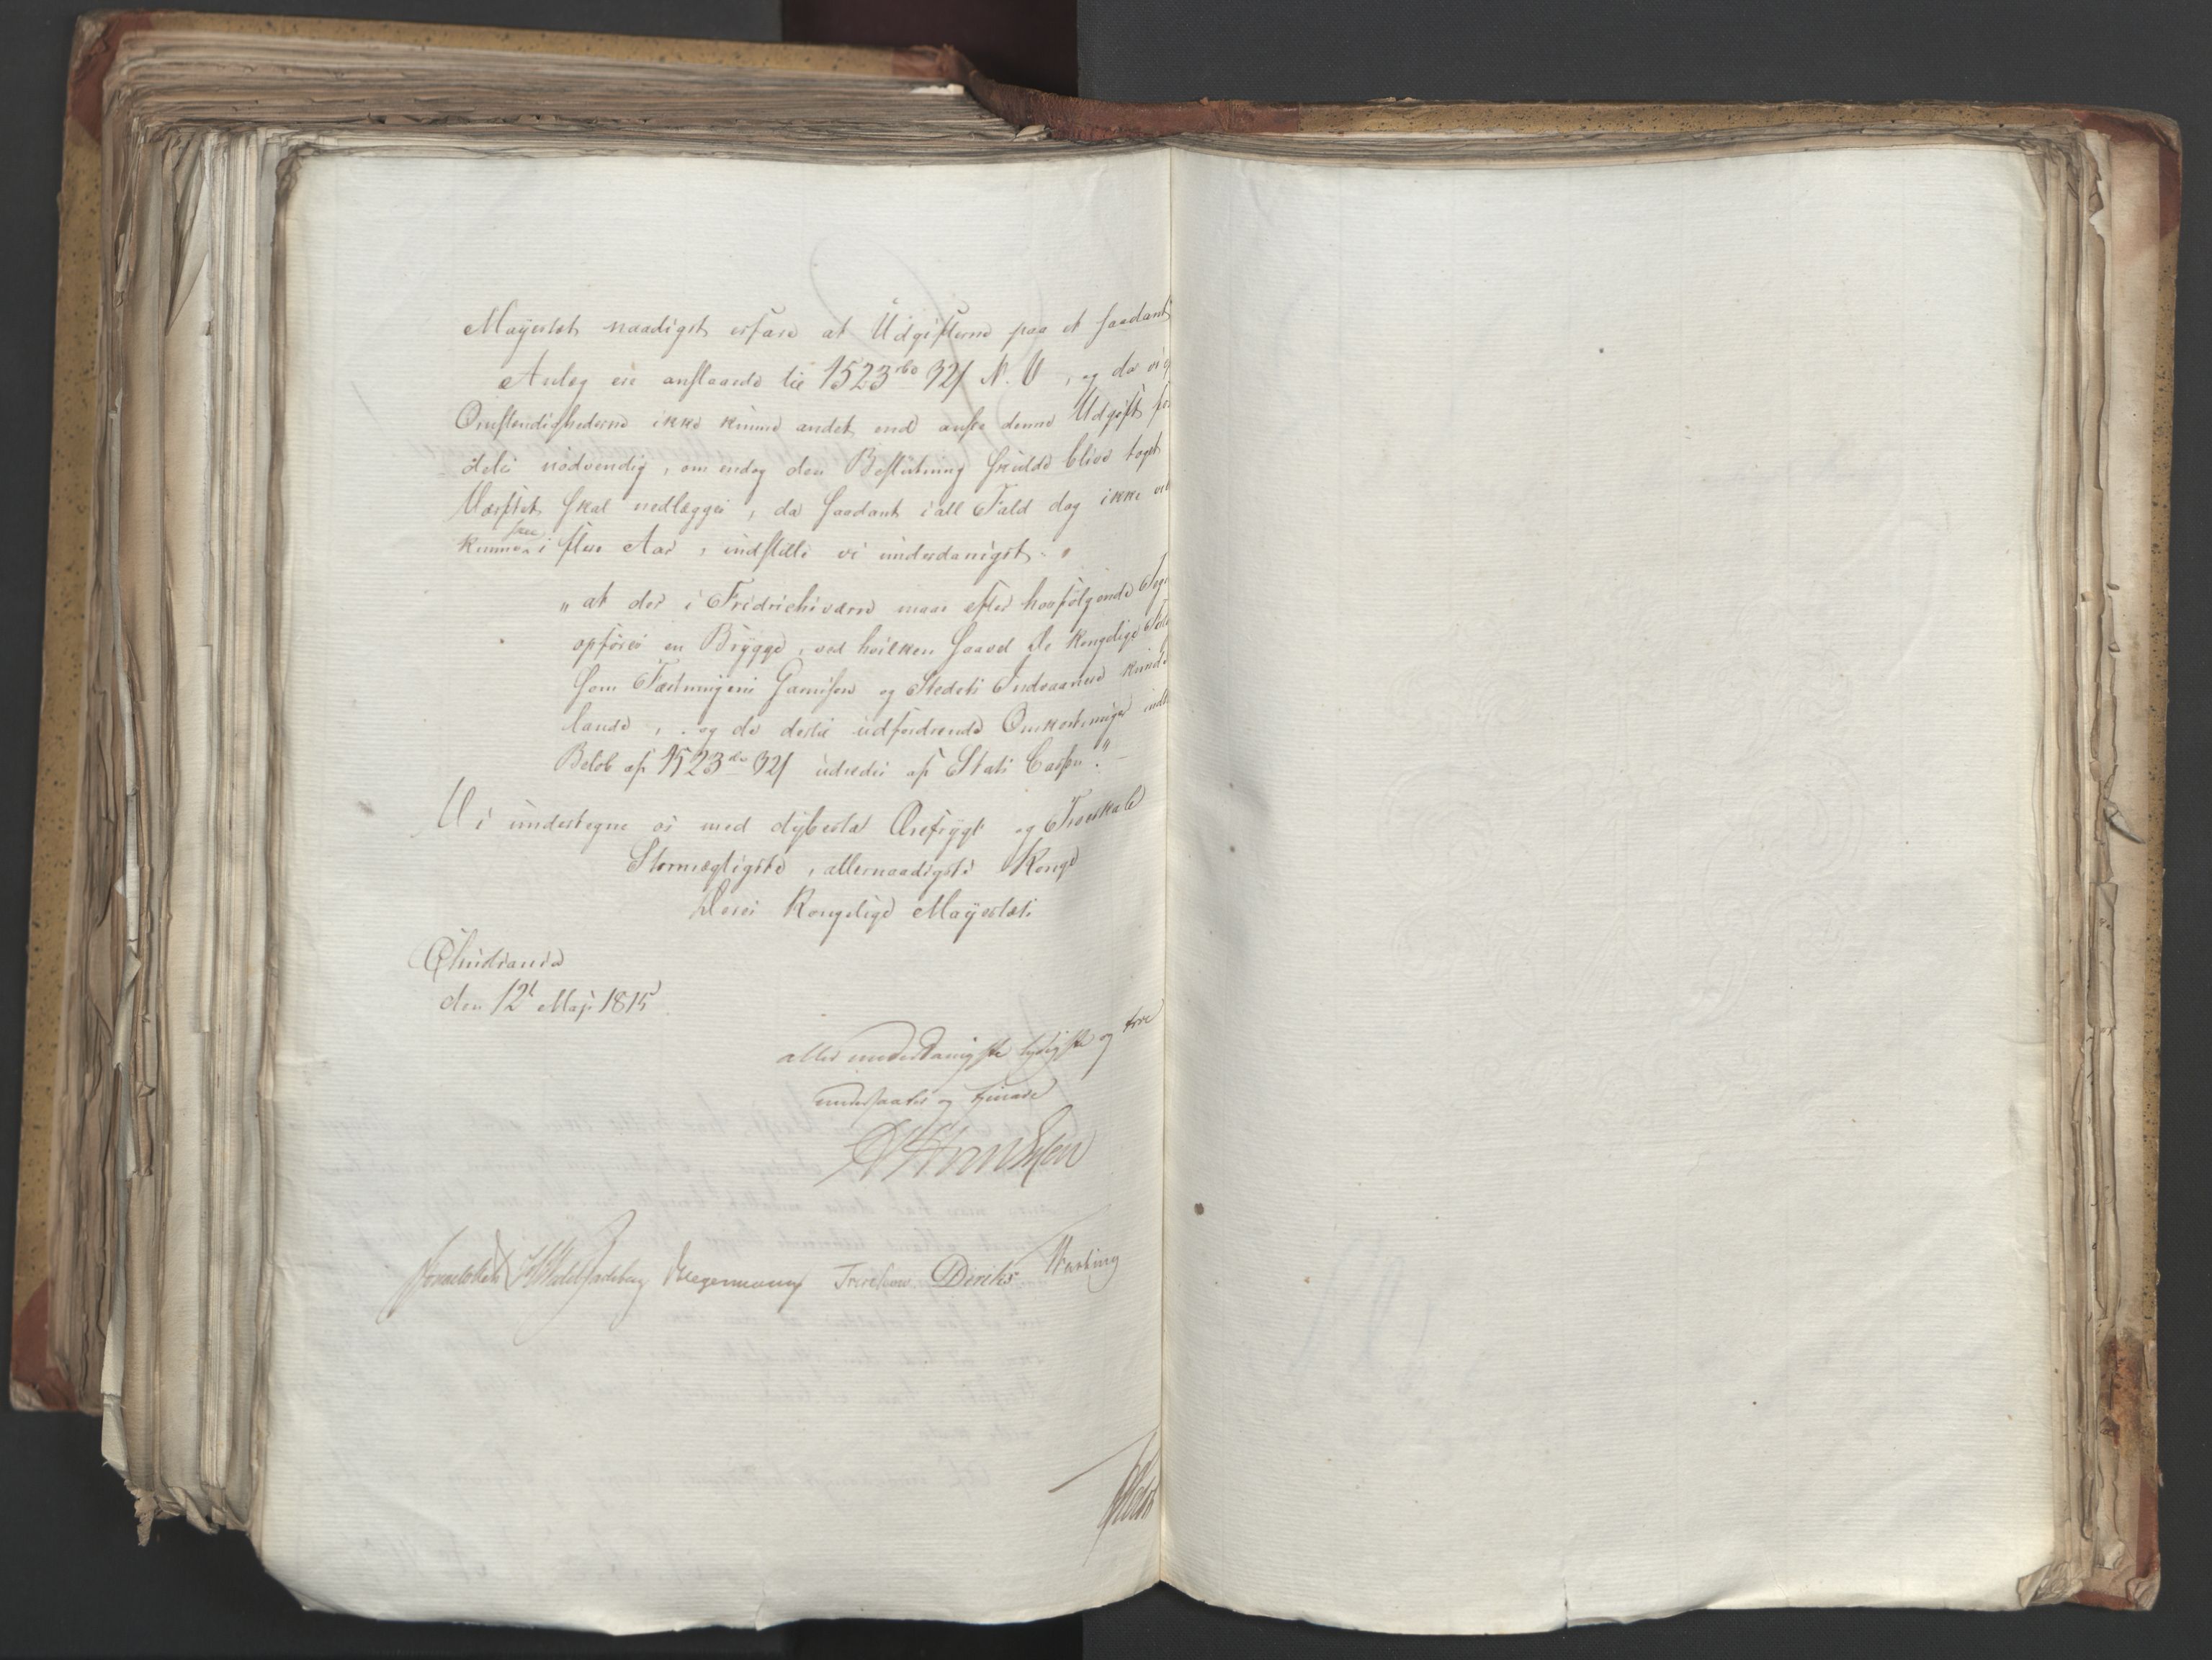 Mayestæt naadigst erfare at Udgifterne paa et saadant
Anlæg ere anslaaede til 1523 rbd 32 s N. V, og da vi
Omstændighederne ikke kunne andet end ansee denne Udgift
nødvendig, om endog den Beslutning skulde blive taget
Værftet skal nedlægges, da saadant i all Fald dog ikke
kunne skee i flere Aar, indstille vi underdanigst:
"at der i Fridrichsværn maae efter hosfølgende
opføres en Brygge, ved hvilken saavel de Kongelige
som Fæstningens Garnison og Stedets Indvaanere kunde
lande, og de dertil udfordrende Omkostninger
Beløb af 1523 rbd 32 s udredes af Stats Cassen."
Vi undertegne os med dybeste Ærefrygt og Troeskab
Stormægtigste, allernaadigste Konge
Deres Kongelige Mayestæts
Christiania
den 12t Maji 1815
aller underdanigste lydigste og troe
undersaatter og tjenere
Sommerhielm Hegermann Treschow Diriks Krebting